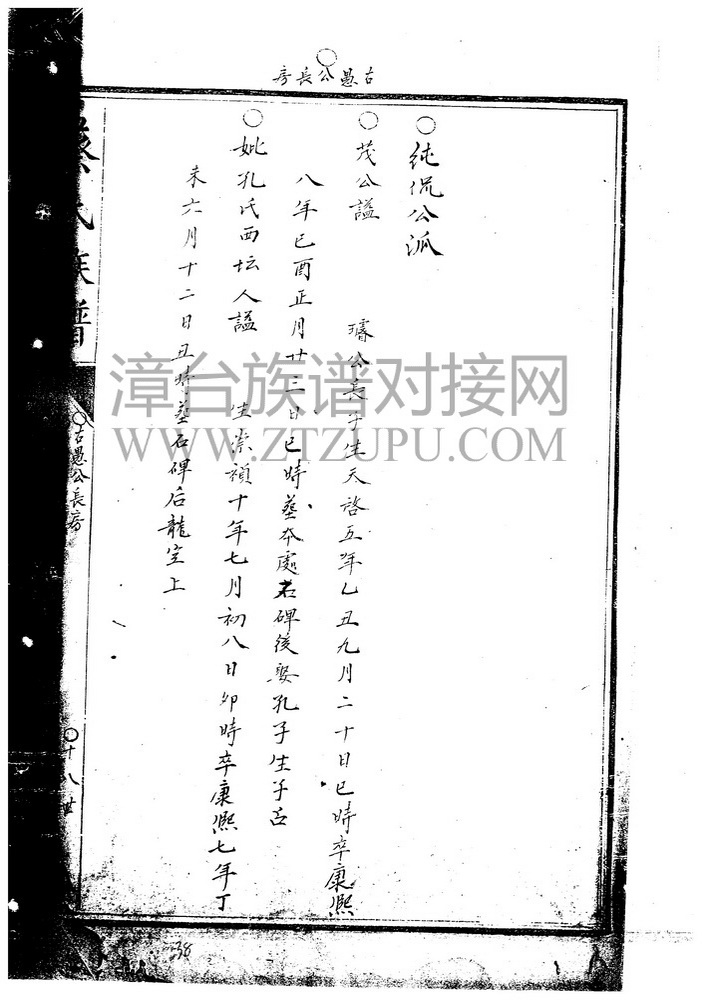 古愚公長房
純侃公派
茂公謚
璿公長子生天啓五年乙丑九月二十日巳時卒康熙
八年己酉正月廿三日巳時葬本處石碑後娶孔子生子舌
妣孔氏西坛人謚
生崇禎十年七月初八日卯時卒康熙七年丁
未六月十二日丑時葬石碑后龍室上
氏族譜
古愚公長房
十八世
38
漳台族谱对接网
WWW.ZTZUPU.COM